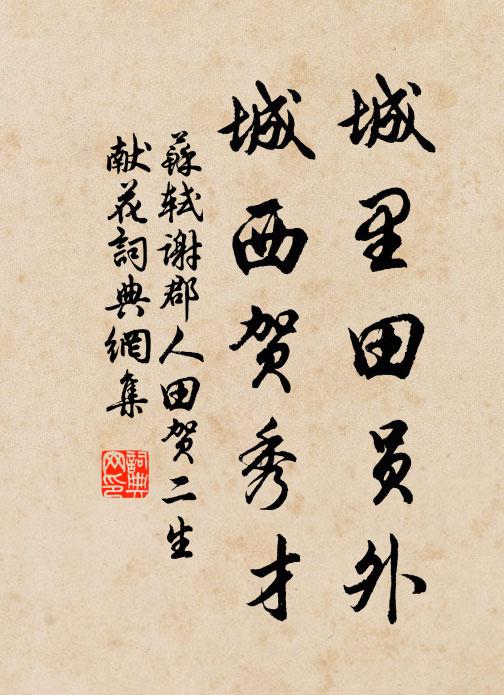 城里田员外
城西贺秀才
蘇軾谢郡人田贺二生
献花詞典網集
詞典
网印